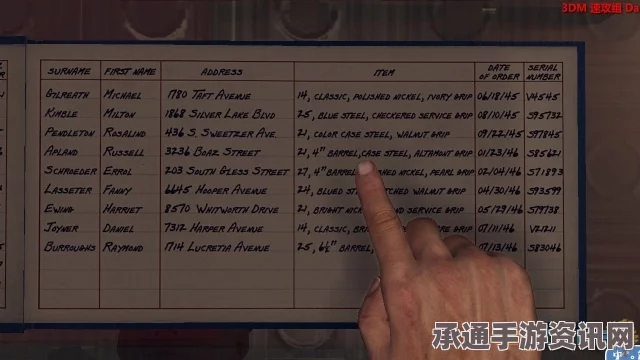 3DM 速攻组 Da
SURNAME FIRST NAME ADDRESS ITEM DATE OF ORDER SERIAL NUMBER
GILREATH MICHAEL 1780 TAFT AVENUE 14, CLASSIC, POLISHED NICKEL, IVORY GRIP 06/18/45 V4545
KIMBLE MILTON 1868 SILVER LAKE BLVD 25, BLUE STEEL, CHECKERED SERVICE GRIP 08/10/45 S95732
PENDLETON ROSALIND 436 S. SWEETZER AVE. 21, COLOR CASE STEEL, WALNUT GRIP 09/22/45 S97845
APLAND RUSSELL 3236 BOAZ STREET 21, 4" BARREL, CASE STEEL, ALTAMONT GRIP 01/23/46 S85621
SCHROEDER ERROL 203 SOUTH GLESS STREET 27, 4" BARREL NICKEL, PEARL GRIP 02/04/46 S71893
LASSETER FANNY 6645 HOOPER AVENUE 24, BLUED WALNUT GRIP 04/30/46 S93599
EWING HARRIET 8570 WHITWORTH DRIVE 21, BRIGHT SERVICE GRIP 05/29/46 S79738
JOYNER DANIEL 7312 HARPER AVENUE 14, CLASSIC, GRIP 07/11/46 V21211
BURROUGHS RAYMOND 1714 LUCRETIA AVENUE 25, 6½" BARREL, 07/13/46 S83046
承通手游资讯网